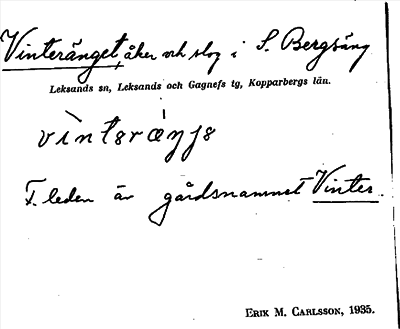 Vinteränget, åker och slog i S. Bergsäng
Leksands sn, Leksands och Gagnefs tg, Kopparbergs län.
vìntəræ̀ŋjə
F. leden är gårdsnamnet Vinter.
ERIK M. CARLSSON, 1935.